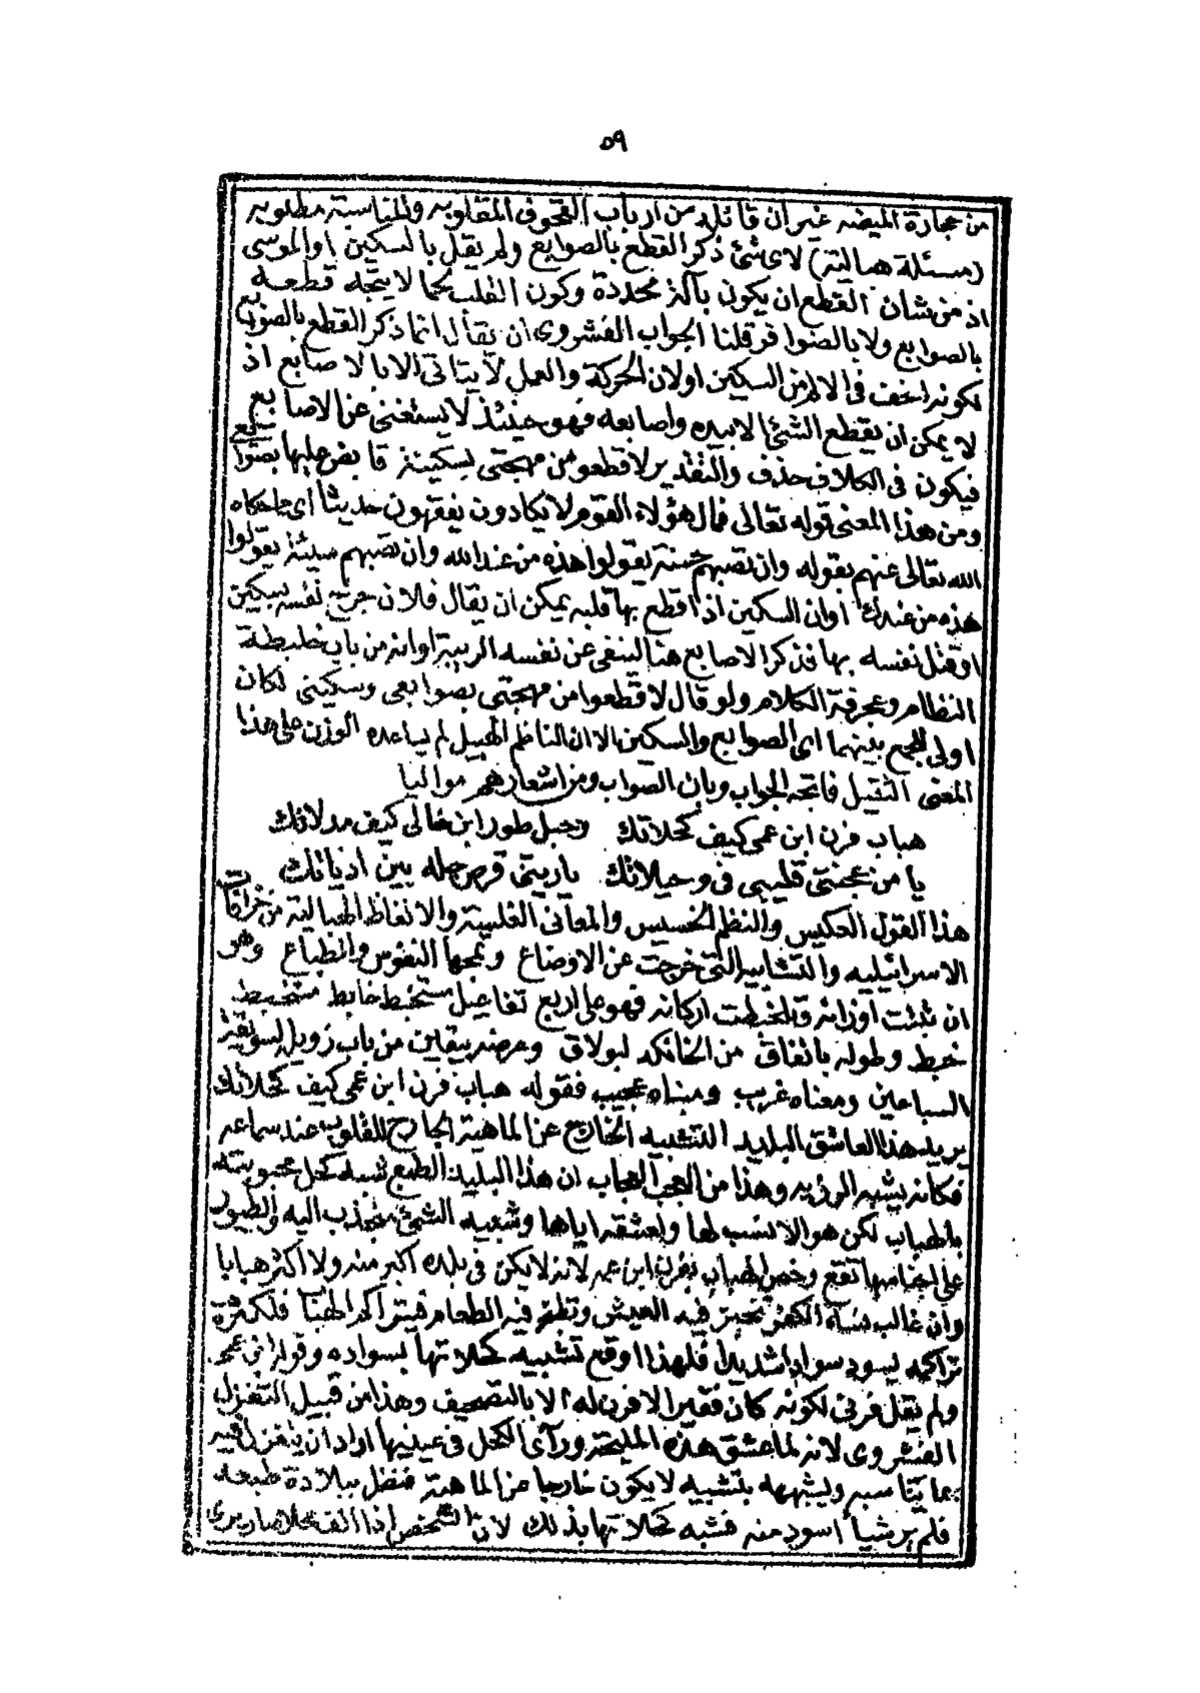 ٥٩
من حجارة الميضه غير ان قائله من ارباب القحوف المقلوبه والمناسبة مطلوبه
(مسئلة هبالية) لاى شئ ذكر القطع بالصوابع ولم يقل بالسكين او الموسى
اذ من شان القطع ان يكون بآلة محددة وكون القلب لحما لا يتجه قطعه
بالصوابع ولا بالضوافر قلنا الجواب الفشروى ان يقال انما ذكر القطع بالصوابع
لكونه اخف فى الالم من السكين او لان الحركة والعمل لا يتاتى الا بالاصابع اذ
لا يمكن ان يقطع الشئ الا بيده واصابعه فهو حينئذ لا يستغنى عن الاصابع
فيكون فى الكلام حذف والتقدير لاقطعو من مهجتى بسكينة قابض عليها بصوابعى
ومن هذا المعنى قوله تعالى فمال هؤلاء القوم لا يكادون يفقهون حديثا أى ما حكاه
الله تعالى عنهم بقوله وان تصبهم حسنة يقولوا هذه من عند الله وان تصبهم سيئة يقولوا
هذه من عندك او ان السكين اذا قطع بها قلبه يمكن ان يقال فلان جرح نفسه بسكين
او قتل نفسه بها فذكر الاصابع هنا لينفى عن نفسه الريبة او انه من باب خلبطة
النظام وعجرفة الكلام ولو قال لاقطعوا من مهجتى بصوابعى وسكينى لكان
اولى للجمع بينهما اى الصوابع والسكين الا ان الناظم الهبيل لم يساعده الوزن على هذا
المعنى الثقيل فاتجه الجواب وبان الصواب ومن اشعارهم مواليا
هباب فرن ابن عمى كيف كحلاتك وحبل طور ابن خالى كيف مدلاتك
يا من عجنتى قليبى فى وحيلاتك ياريتنى قرص جله بين اذيالك
هذا القول العكيس والنظم الخسيس والمعانى الفلسية والالفاظ الهبالية من خرافات
الاسرائيليه والتشابيه التى خرجت عن الاوضاع وتمجها النفوس والطباع وهو
ان ثبتت اوزانه ولخبطت اركانه فهو على اربع تفاعيل مستخبط خابط مستخبط
خبط وطوله باتفاق من الخانكه لبولاق وعرضه بيقين من باب زويله لسويقة
السباعين ومعناه غريب ومبناه عجيب فقوله هباب فرن ابن عمى كيف كحلاتك
يريد هذا العاشق البليد التشبيه الخارج عن الماهية الجارح للقلوب عند سماعه
فكانه يشبه الرؤيه وهذا من العجب العجاب ان هذا البليد الطبع شبه كحل محبوبته
بالهباب لكن هو الانسب لها ولعشقه اياها وشبيه الشئ منجذب اليه والطيور
على اجناسها تقع وخص الهباب بفرن ابن عمه لانه لا يكن فى بلده اكبر منه ولا اكثر هبابا
وان غالب نساء الكفر تخبز فيه العيش وتطبخ فيه الطعام فيتراكم الهباب فلكثرة
تراكمه يسود سوادا شديدا فلهذا اوقع تشبيه كحلاتها بسواده وقوله ابن عمى
ولم يقل فرنى لكونه كان فقيرا لا فرن له الا بالتصحيف وهذا من قبيل التغزل
الفشروى لانه لما عشق هذه المليحة ورأى الكحل فى عينيها اراد ان يتغزل فيه
بما يناسبه ويشبهه بتشبيه لا يكون خارجا عن الماهية فنظر ببلادة طبعه
فلم ير شيأ اسود منه فشبه كحلاتها بذلك لان الشخص اذا الف محلا صار يرى